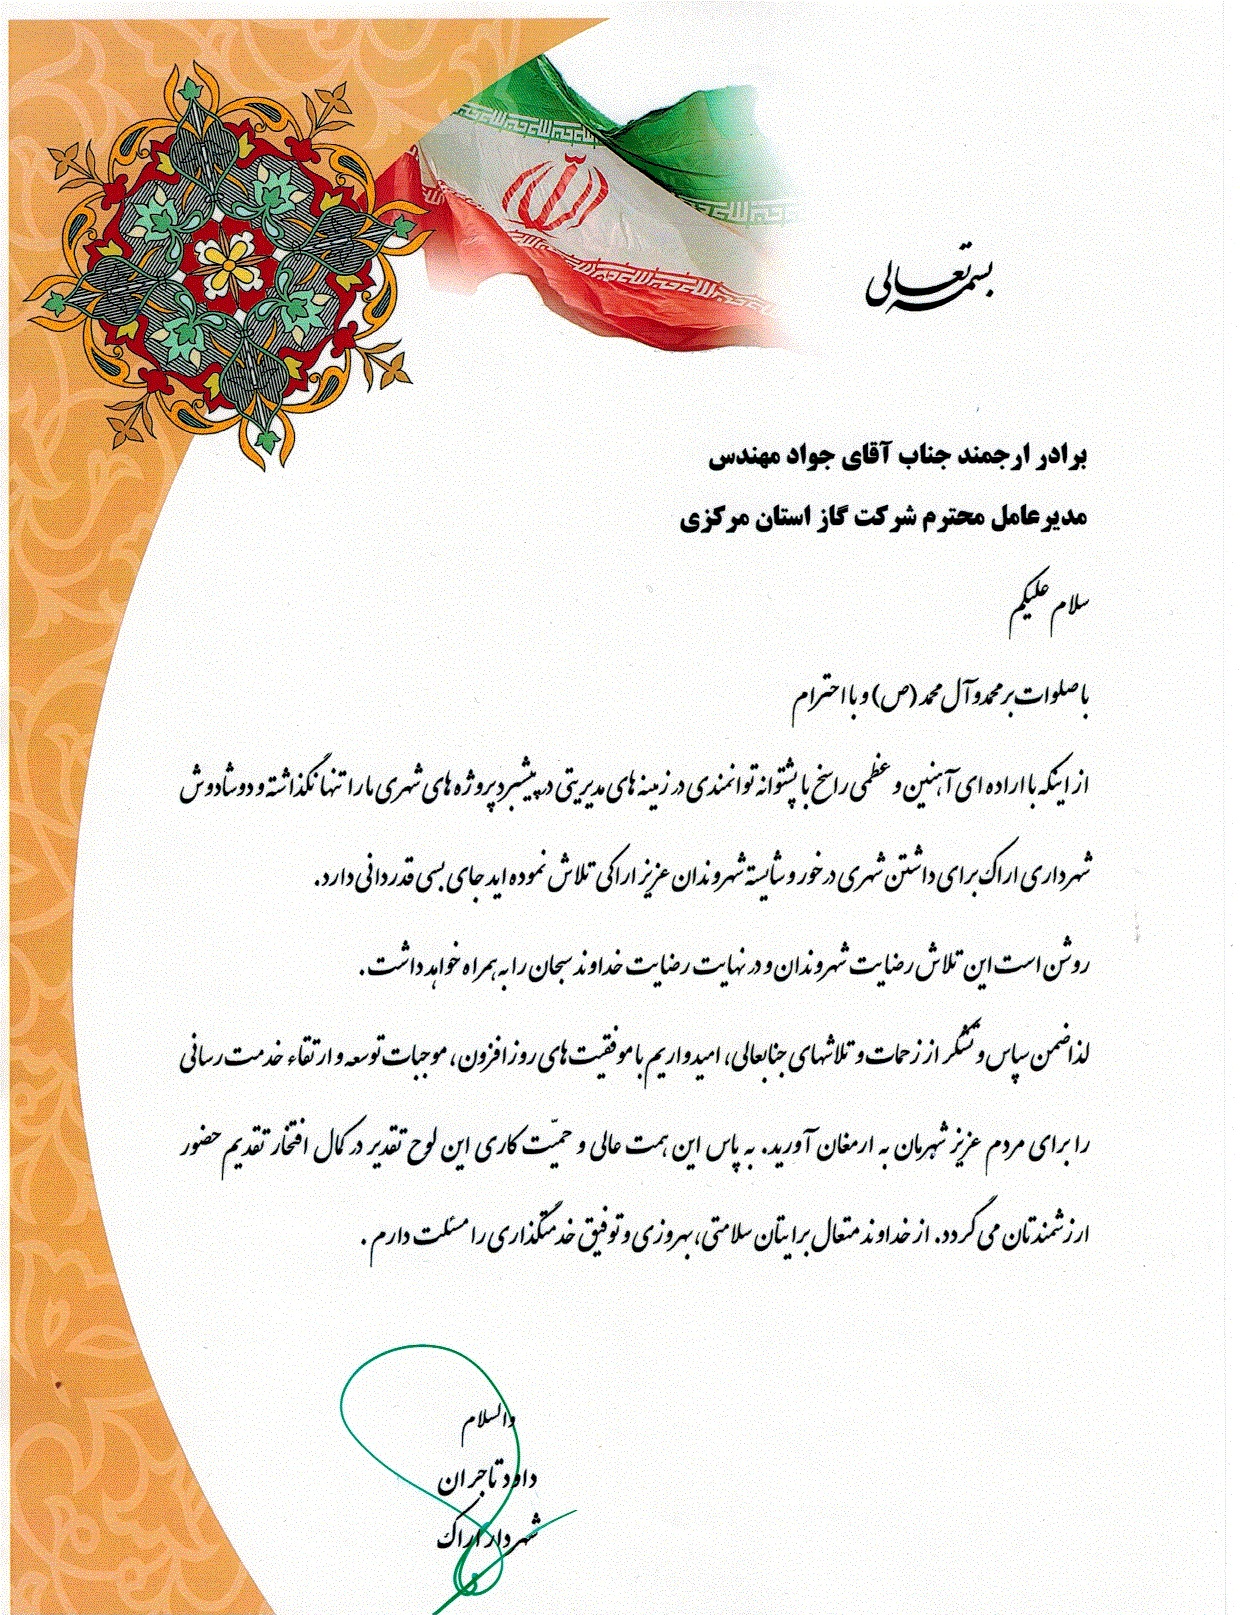 بسمه تعالی
برادر ارجمند جناب آقای جواد مهندس
مدیرعامل محترم شرکت گاز استان مرکزی
سلام علیکم
با صلوات بر محمد و آل محمد (ص) و با احترام
از اینکه با اراده ای آهنین و عظمی راسخ با پشتوانه توانمندی در زمینه های مدیریتی در پیشبرد پروژه های شهری ما را تنها نگذاشته و دوشادوش
شهرداری اراک برای داشتن شهری درخور و شایسته شهروندان عزیز اراکی تلاش نموده اید جای بسی قدردانی دارد.
روشن است این تلاش رضایت شهروندان و در نهایت رضایت خداوند سبحان را به همراه خواهد داشت.
لذا ضمن سپاس و تشکر از زحمات و تلاشهای جنابعالی، امیدواریم با موفقیت های روزافزون، موجبات توسعه و ارتقاء خدمت رسانی
را برای مردم عزیز شهرمان به ارمغان آورید. به پاس این همت عالی و حمیّت کاری این لوح تقدیر در کمال افتخار تقدیم حضور
ارزشمندتان می گردد. از خداوند متعال برایتان سلامتی، بهروزی و توفیق خدمتگذاری را مسئلت دارم.
والسلام
داود تاجران
شهردار اراک